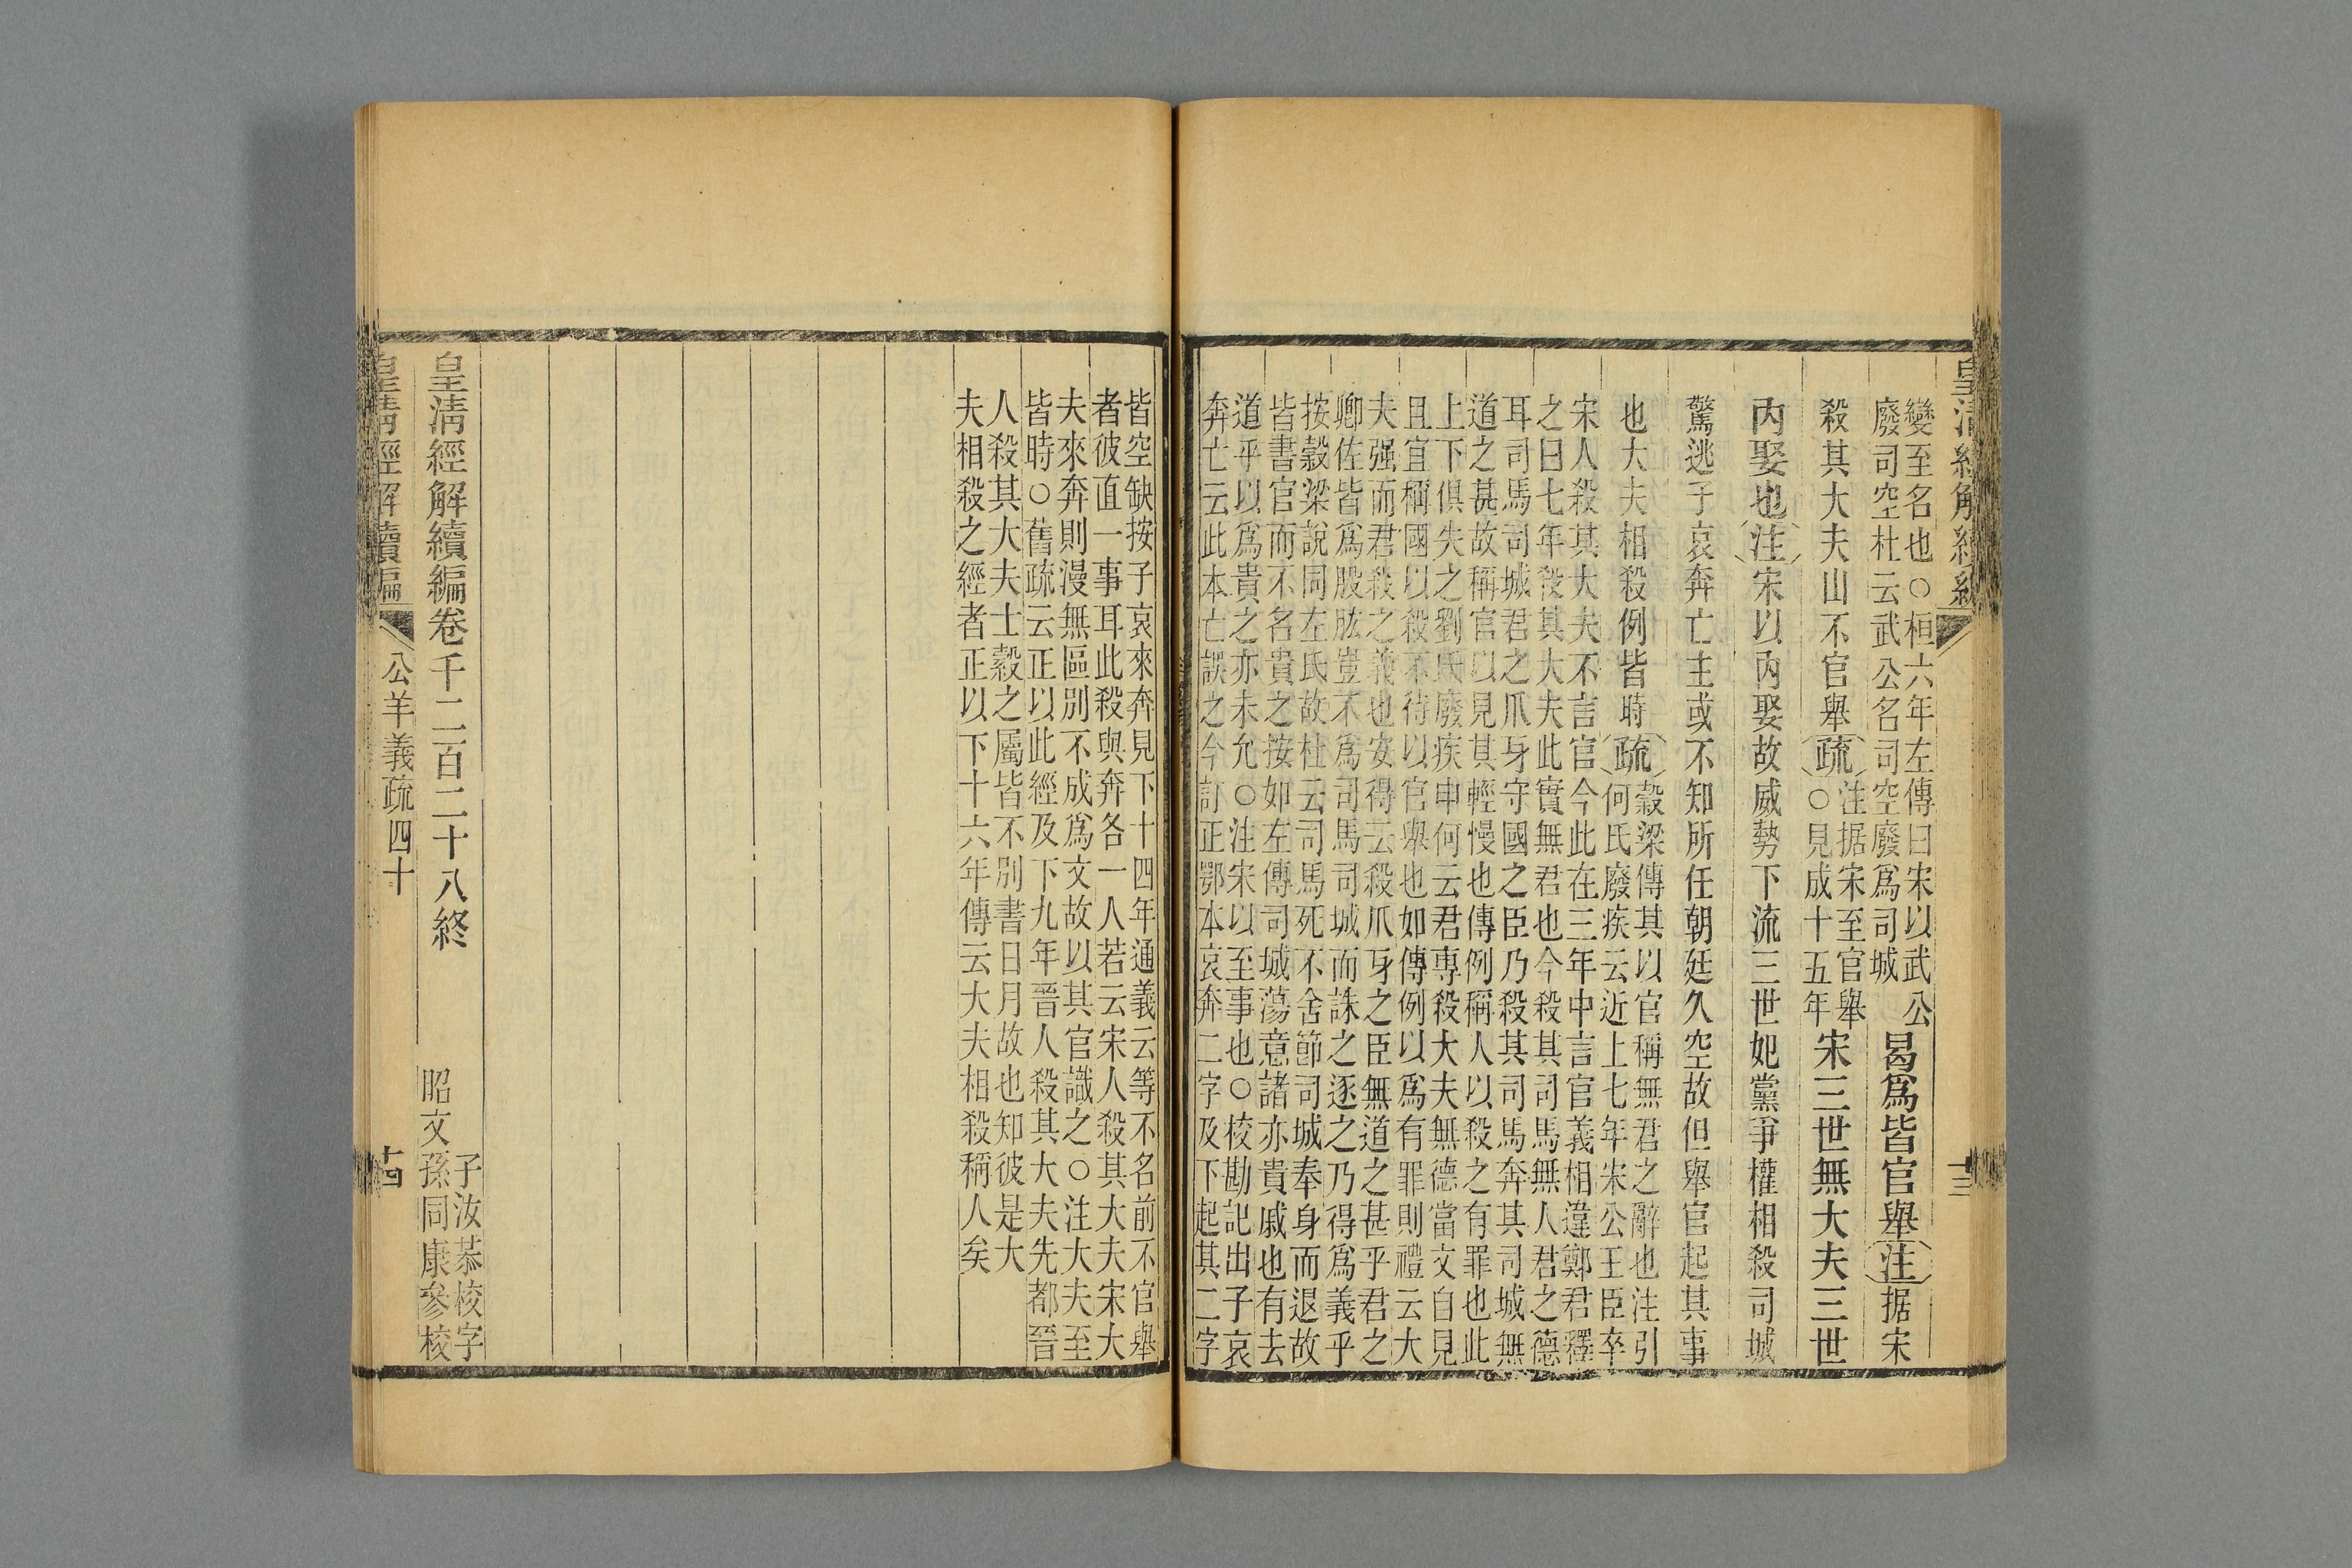 皇清經解續編
變至名也○桓六年左傳曰宋以武公
廢司空杜云武公名司空廢爲司城
曷爲皆官舉注据宋
殺其大夫山不官舉疏
注据宋至官舉
○見成十五年
宋三世無大夫三世
內娶也注宋以內娶故威勢下流三世妃黨爭權相殺司城
驚逃子哀奔亡主或不知所任朝廷久空故但舉官起其事
也大夫相殺例皆時疏
穀梁傳其以官稱無君之辭也注引
何氏廢疾云近上七年宋公王臣卒
宋人殺其大夫不言官今此在三年中言官義相違鄭君釋
之曰七年殺其大夫此實無君也今殺其司馬無人君之德
耳司馬司城君之爪牙守國之臣乃殺其司馬奔其司城無
道之甚故稱官以見其輕慢也傳例稱人以殺之有罪也此
上下俱失之劉氏廢疾申何云君專殺大夫無德當文自見
且宜稱國以殺不待以官舉也如傳例以爲有罪則禮云大
夫强而君殺之義也安得云殺爪牙之臣無道之甚乎君之
卿佐皆爲股肱豈不爲司馬司城而誅之逐之乃得爲義乎
按穀梁說同左氏故杜云司馬死不舍節司城奉身而退故
皆書官而不名貴之按如左傳司城蕩意諸亦貴戚也有去
道乎以爲貴之亦未允○注宋以至事也○校勘記出子哀
奔亡云此本亡誤之今訂正鄂本哀奔二字及下起其二字
十三
皆空缺按子哀來奔見下十四年通義云等不名前不官舉
者彼直一事耳此殺與奔各一人若云宋人殺其大夫宋大
夫來奔則漫無區別不成爲文故以其官識之○注大夫至
皆時○舊疏云正以此經及下九年晉人殺其大夫先都晉
人殺其大夫士縠之屬皆不別書日月故也知彼是大
夫相殺之經者正以下十六年傳云大夫相殺稱人矣
皇清經解續編卷千二百二十八終
子汝恭校字
昭文孫同康參校
皇清經解續編
公羊義疏四十
十四